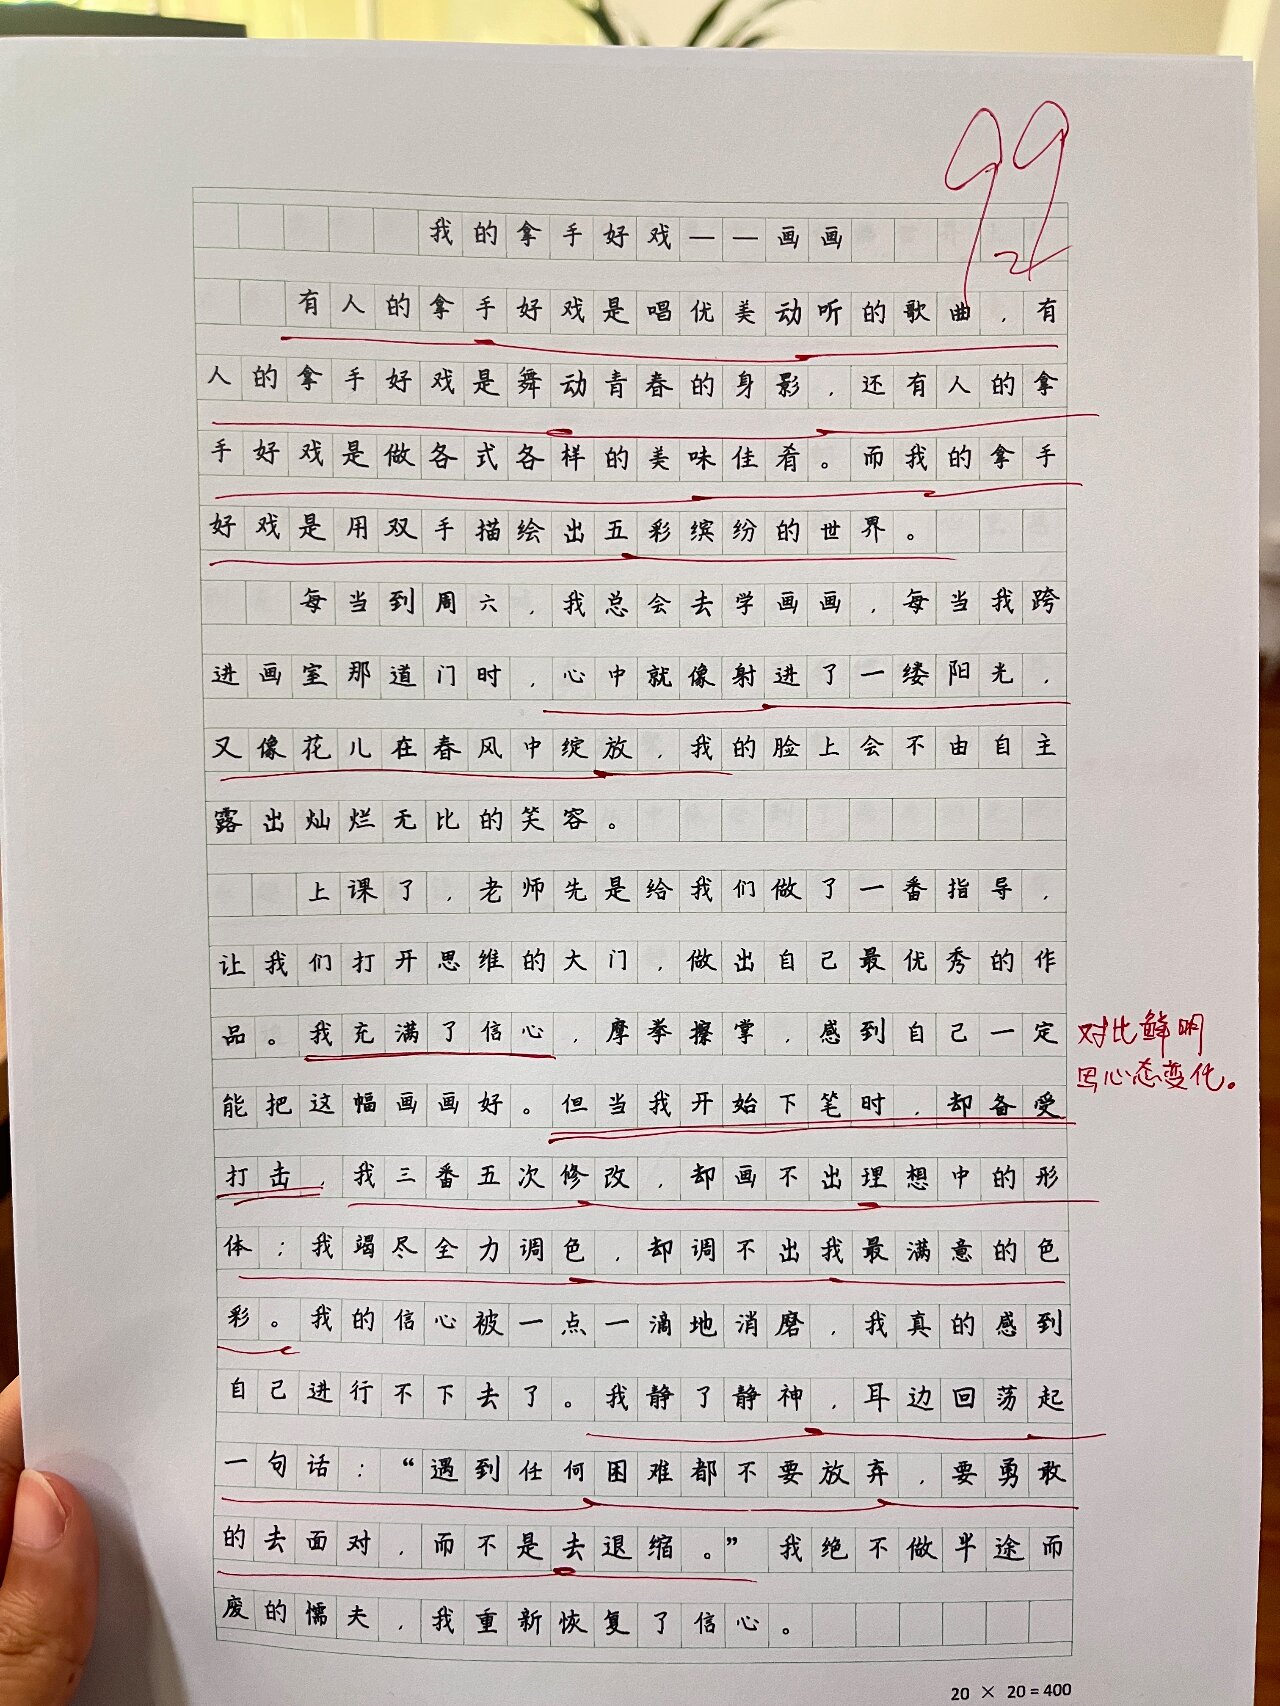 99
我的拿手好戏——画画
有人的拿手好戏是唱优美动听的歌曲，有
人的拿手好戏是舞动青春的身影，还有人的拿
手好戏是做各式各样的美味佳肴。而我的拿手
好戏是用双手描绘出五彩缤纷的世界。
每当到周六，我总会去学画画，每当我跨
进画室那道门时，心中就像射进了一缕阳光，
又像花儿在春风中绽放，我的脸上会不由自主
露出灿烂无比的笑容。
上课了，老师先是给我们做了一番指导，
让我们打开思维的大门，做出自己最优秀的作
品。我充满了信心，摩拳擦掌，感到自己一定
对比鲜明
能把这幅画画好。但当我开始下笔时，却备受
写心态变化。
打击，我三番五次修改，却画不出理想中的形
体；我竭尽全力调色，却调不出我最满意的色
彩。我的信心被一点一滴地消磨，我真的感到
自己进行不下去了。我静了静神，耳边回荡起
一句话：“遇到任何困难都不要放弃，要勇敢
的去面对，而不是去退缩。”我绝不做半途而
废的懦夫，我重新恢复了信心。
20 × 20 = 400